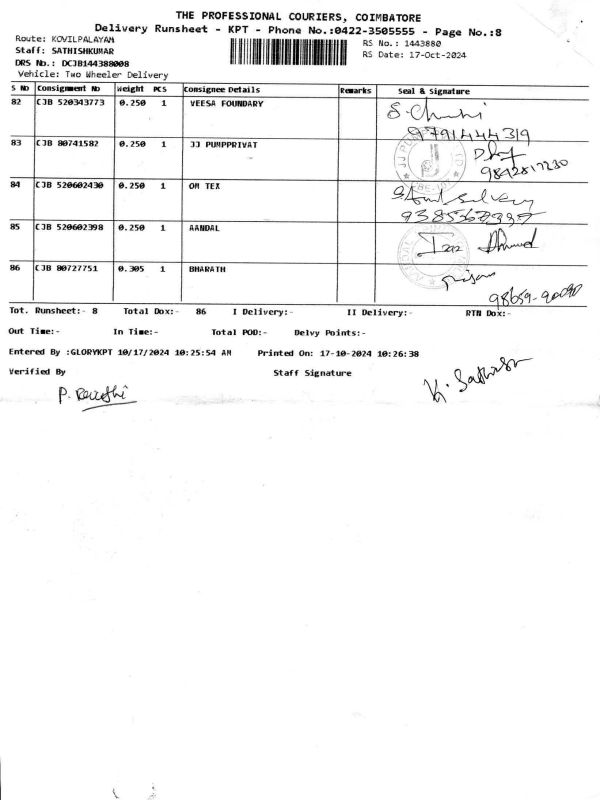 THE PROFESSIONAL COURIERS, COIMBATORE
Delivery Runsheet - KPT - Phone No.:0422-3505555 - Page No.:8
Route: KOVILPALAYAM
RS No.: 1443880
Staff: SATHISHKUMAR
RS Date: 17-Oct-2024
DRS No.: DCJB144388008
Vehicle: Two Wheeler Delivery
S No Consignment No Weight PCS Consignee Details Remarks Seal & Signature
82 CJB 520343773 0.250 1 VEESA FOUNDARY
9791444319
83 CJB 80741582 0.250 1 JJ PUMPPRIVAT
9842817230
84 CJB 520602430 0.250 1 OM TEX
85 CJB 520602398 0.250 1 AANDAL
86 CJB 80727751 0.305 1 BHARATH
Tot. Runsheet:- 8 Total Dox:- 86 I Delivery:- II Delivery:- RTN Dox:-
Out Time:- In Time:- Total POD:- Delvy Points:-
Entered By :GLORYKPT 10/17/2024 10:25:54 AM Printed On: 17-10-2024 10:26:38
Verified By Staff Signature